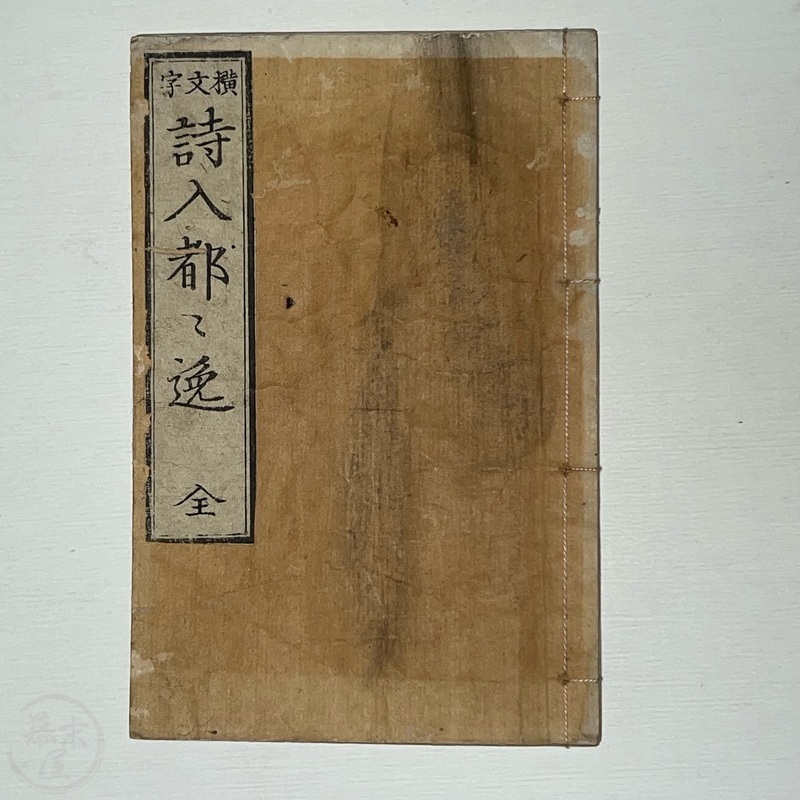 横文字
詩入都〻逸
全
幕末屋